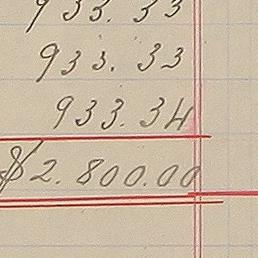 933.33
933.33
933.34
$2.800.00